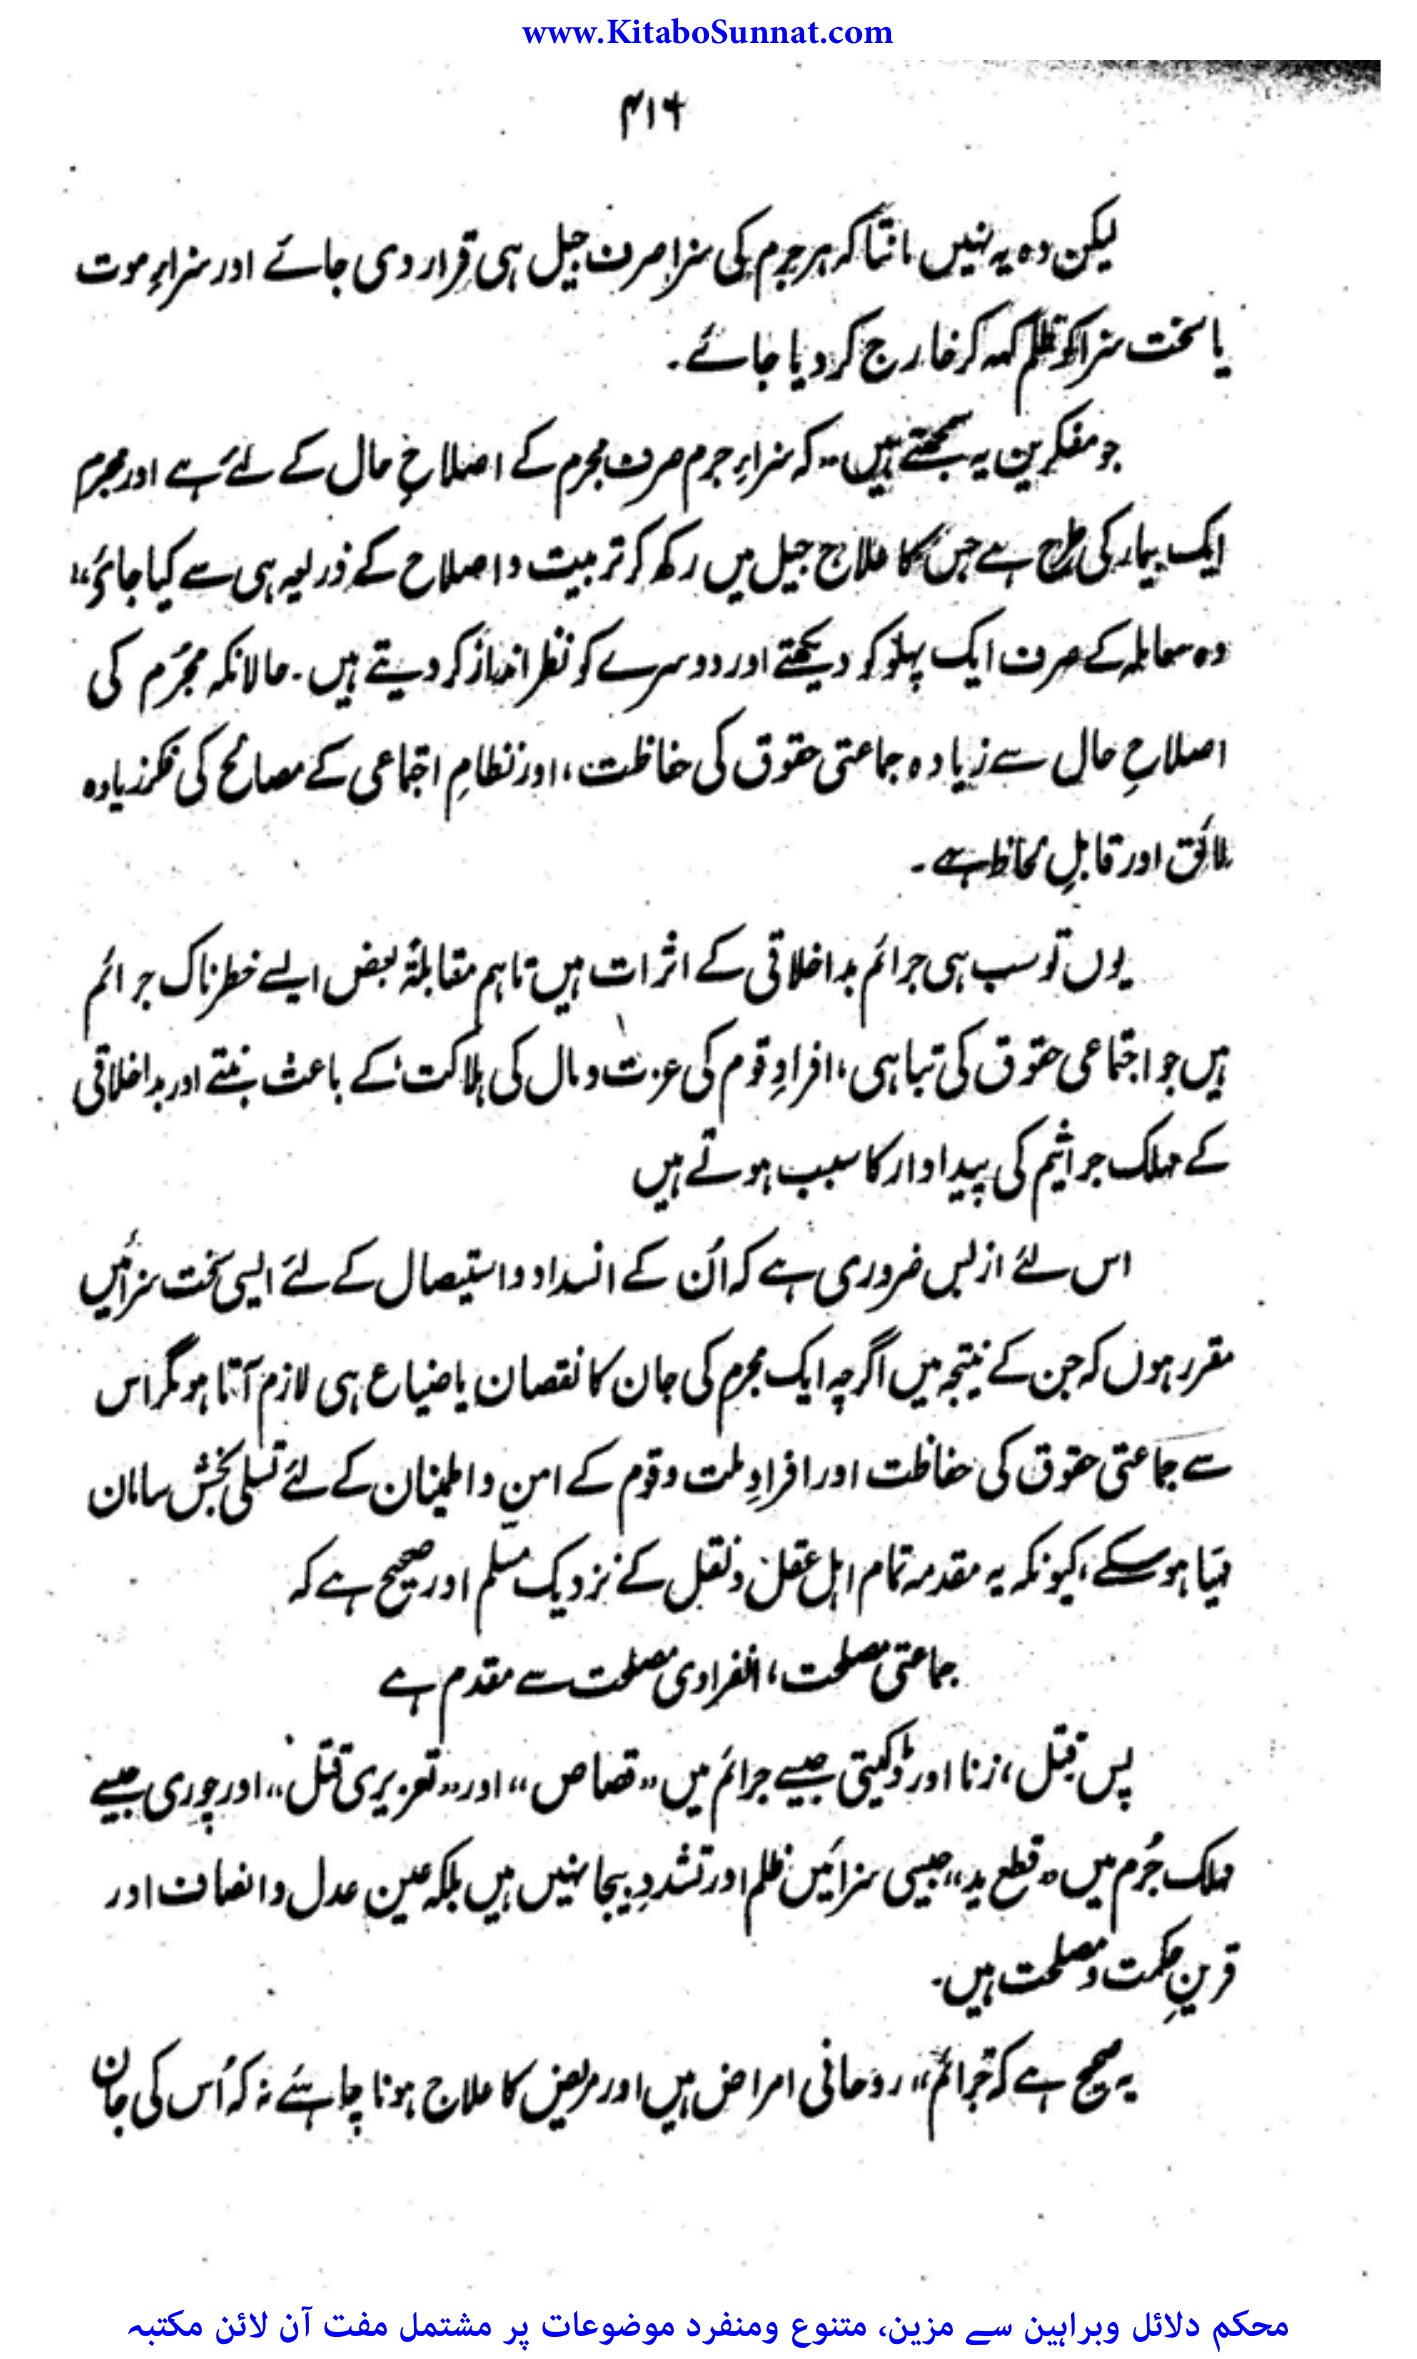 www.KitaboSunnat.com
۴۱۶
لیکن وہ یہ نہیں مانتا کہ ہر جرم کی سزا صرف جیل ہی قرار دی جائے اور سزاءِ موت
یا سخت سزا کو ظلم کہہ کر خارج کر دیا جائے۔
جو مفکرین یہ سمجھتے ہیں "کہ سزاءِ جرم صرف مجرم کے اصلاحِ حال کے لئے ہے اور مجرم
ایک بیمار کی طرح ہے جس کا علاج جیل میں رکھ کر تربیت و اصلاح کے ذریعہ ہی سے کیا جائے"
وہ معاملہ کے صرف ایک پہلو کو دیکھتے اور دوسرے کو نظر انداز کر دیتے ہیں۔ حالانکہ مجرُم کی
اصلاحِ حال سے زیادہ جماعتی حقوق کی حفاظت، اور نظامِ اجتماعی کے مصالح کی فکر زیادہ
لائق اور قابلِ لحاظ ہے۔
یوں تو سب ہی جرائم بداخلاقی کے اثرات ہیں تاہم مقابلۃً بعض ایسے خطرناک جرائم
ہیں جو اجتماعی حقوق کی تباہی، افرادِ قوم کی عزت و مال کی ہلاکت کے باعث بنتے اور بداخلاقی
کے مہلک جراثیم کی پیداوار کا سبب ہوتے ہیں
اس لئے ازبس ضروری ہے کہ اُن کے انسداد و استیصال کے لئے ایسی سخت سزائیں
مقرر ہوں کہ جن کے نتیجہ میں اگرچہ ایک مجرم کی جان کا نقصان یا ضیاع ہی لازم آتا ہو مگر اس
سے جماعتی حقوق کی حفاظت اور افرادِ ملت و قوم کے امن و اطمینان کے لئے تسلی بخش سامان
مہیا ہو سکے، کیونکہ یہ مقدمہ تمام اہل عقل و نقل کے نزدیک مسلم اور صحیح ہے کہ
جماعتی مصلحت، انفرادی مصلحت سے مقدم ہے
پس قتل، زنا اور ڈکیتی جیسے جرائم میں "قصاص" اور "تعزیری قتل" اور چوری جیسے
مہلک جُرم میں "قطع ید" جیسی سزائیں ظلم اور تشددِ بیجا نہیں ہیں بلکہ عین عدل و انصاف اور
قرینِ حکمت و مصلحت ہیں۔
یہ صحیح ہے کہ "جرائم" روحانی امراض ہیں اور مریض کا علاج ہونا چاہئے نہ کہ اُس کی جان
محکم دلائل وبراہین سے مزین، متنوع ومنفرد موضوعات پر مشتمل مفت آن لائن مکتبہ